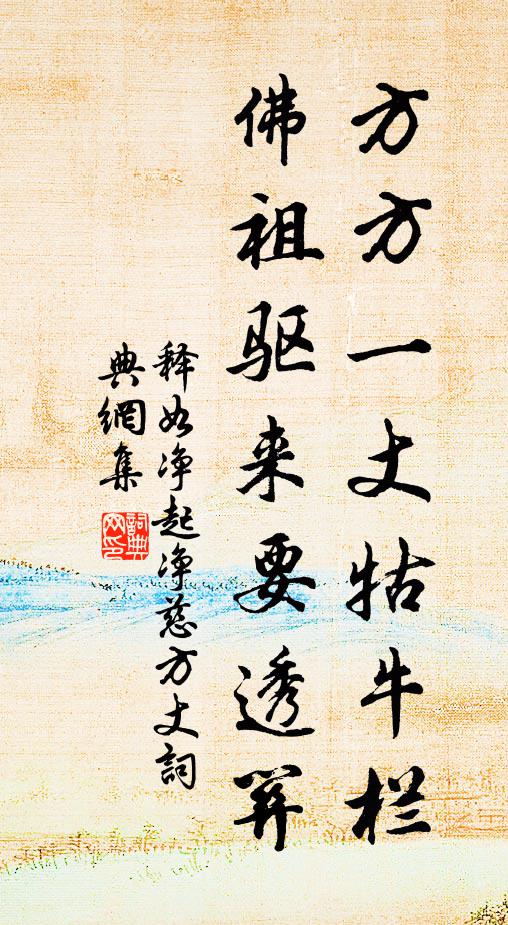 方方一丈牯牛栏
佛祖驱来要透关
释如净起净慈方丈詞
典網集
詞典
网印